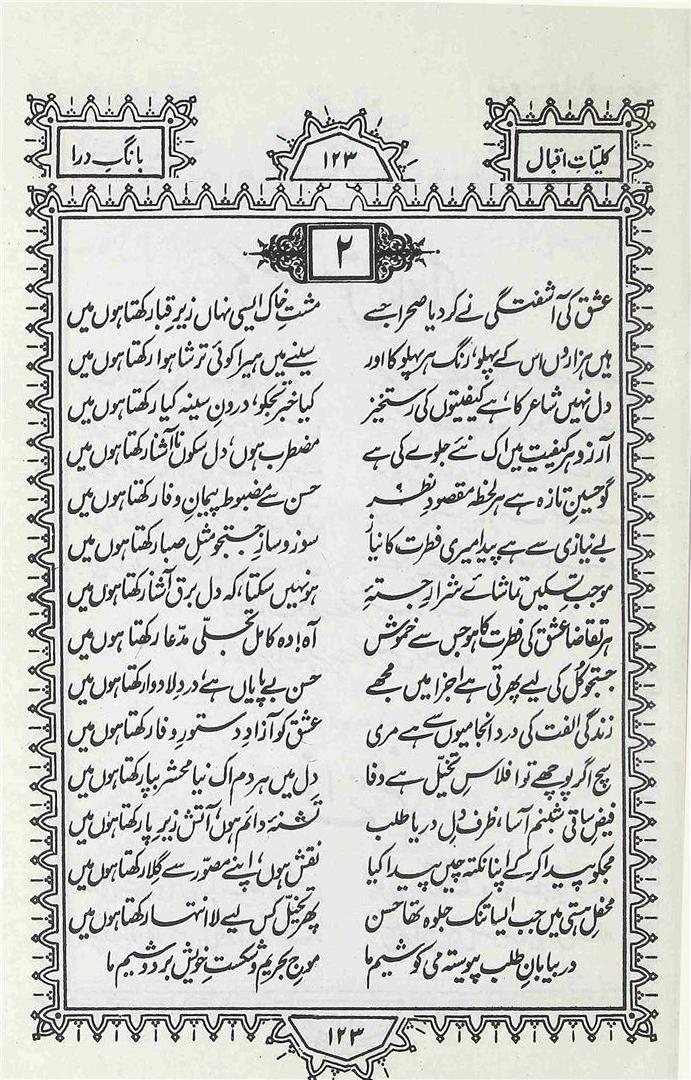 کلیاتِ اقبال ۱۲۳ بانگِ درا
۲
عشق کی آشفتگی نے کر دیا صحرا جسے مشتِ خاک ایسی نہاں زیرِ قبا رکھتا ہوں میں
ہیں ہزاروں اس کے پہلو، رنگ ہر پہلو کا اور سینے میں ہیرا کوئی ترشا ہوا رکھتا ہوں میں
دل نہیں شاعر کا، ہے کیفیتوں کی رستخیز کیا خبر تجکو، درونِ سینہ کیا رکھتا ہوں میں
آرزو ہر کیفیت میں اک نئے جلوے کی ہے مضطرب ہوں، دل سکوں ناآشنا رکھتا ہوں میں
گو حسینِ تازہ ہے ہر لحظہ مقصودِ نظر حسن سے مضبوط پیمانِ وفا رکھتا ہوں میں
بے نیازی سے ہے پیدا میری فطرت کا نیاز سوز و سازِ جستجو مثلِ صبا رکھتا ہوں میں
موجبِ تسکیں تماشائے شرارِ جستۂ ہو نہیں سکتا، کہ دل برق آشنا رکھتا ہوں میں
ہر تقاضا عشق کی فطرت کا ہو جس سے خموش آہ! وہ کامل تجلّی مدّعا رکھتا ہوں میں
جستجو کُل کی لیے پھرتی ہے اجزا میں مجھے حسن بے پایاں ہے، دردِ لادوا رکھتا ہوں میں
زندگی الفت کی درد انجامیوں سے ہے مری عشق کو آزادِ دستورِ وفا رکھتا ہوں میں
سچ اگر پوچھے تو افلاسِ تخیّل ہے وفا دل میں ہر دم اک نیا محشر بپا رکھتا ہوں میں
فیضِ ساقی شبنم آسا، ظرفِ دل دریا طلب تشنۂ دائم ہوں، آتش زیرِ پا رکھتا ہوں میں
مجکو پیدا کر کے اپنا نکتہ چیں پیدا کیا نقش ہوں، اپنے مصوّر سے گلا رکھتا ہوں میں
محفلِ ہستی میں جب ایسا تنک جلوہ تھا حسن پھر تخیّل کس لیے لاانتہا رکھتا ہوں میں
در بیابانِ طلب پیوستہ می کوشیم ما موجِ بحریم و شکستِ خویش بر دوشیم ما
۱۲۳